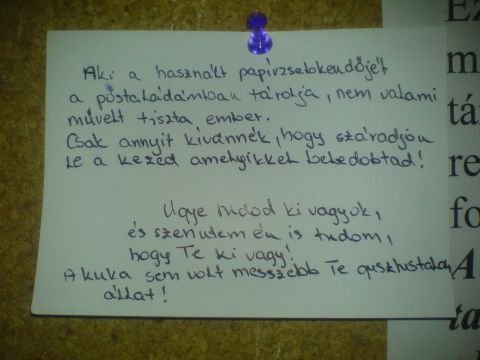 Aki a használt papírzsebkendőjét
a postaládámban tárolja, nem valami
művelt tiszta ember.
Csak annyit kívánnék, hogy száradjon
le a kezed amelyikkel beledobtad!
Ugye tudod ki vagyok,
és szerintem én is tudom,
hogy Te ki vagy!
A kuka sem volt messzebb Te gusztustalan
állat!
Ez
m
tá
re
fo
A
ta